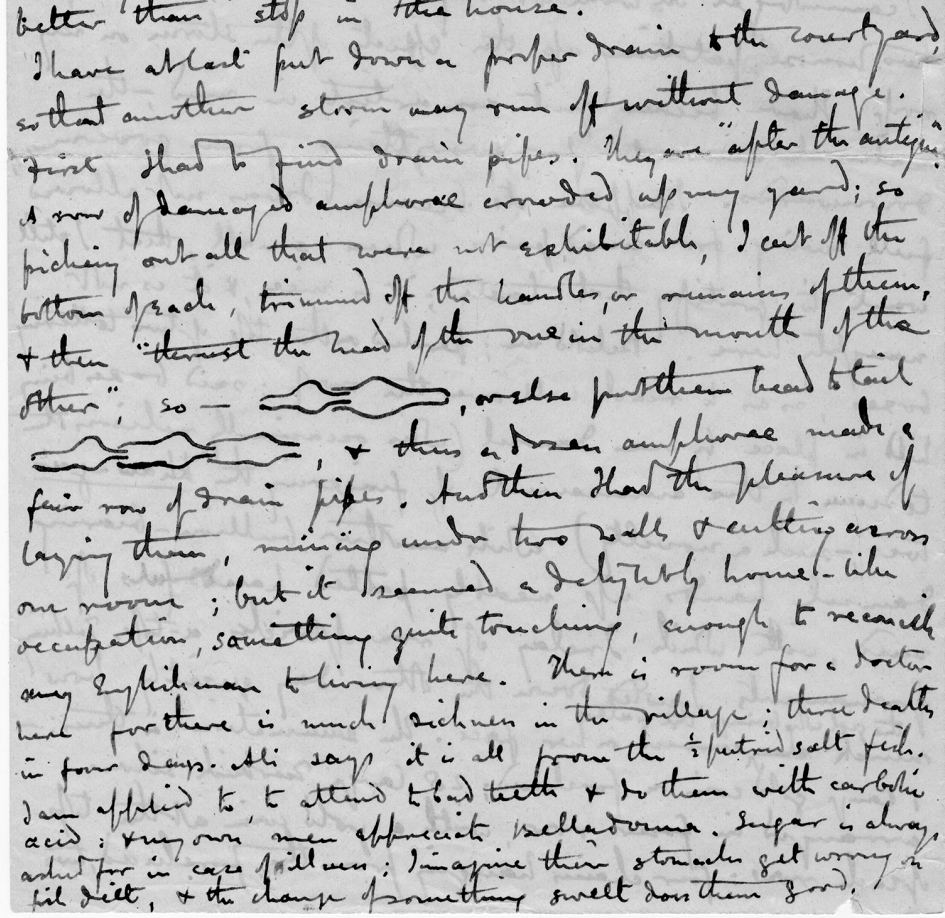 better than stop in the house.
I have at last put down a proper drain to the courtyard,
so that another storm may run off without damage.
First I had to find drain pipes. They are "after the antique".
A row of damaged amphorae crowded up my yard; so
picking out all that were not exhibitable, I cut off the
bottom of each, trimmed off the handles, or remains of them,
& then "thrust the head of the one in the mouth of the
other"; so — , or else put them head to tail
, & thus a dozen amphorae made a
fair row of drain pipes. And then I had the pleasure of
laying them, mining under two walls & cutting across
one room; but it seemed a delightfully home-like
occupation, something quite touching, enough to reconcile
any Englishman to living here. There is room for a doctor
here for there is much sickness in the village; three deaths
in four days. Ali says it is all from the ½ putrid salt fish.
I am applied to, to attend to bad teeth & do them with carbolic
acid; & my own men appreciate belladonna. Sugar is always
asked for in case of illness; I imagine their stomachs get wrong on
diet, & the change of something sweet does them good.